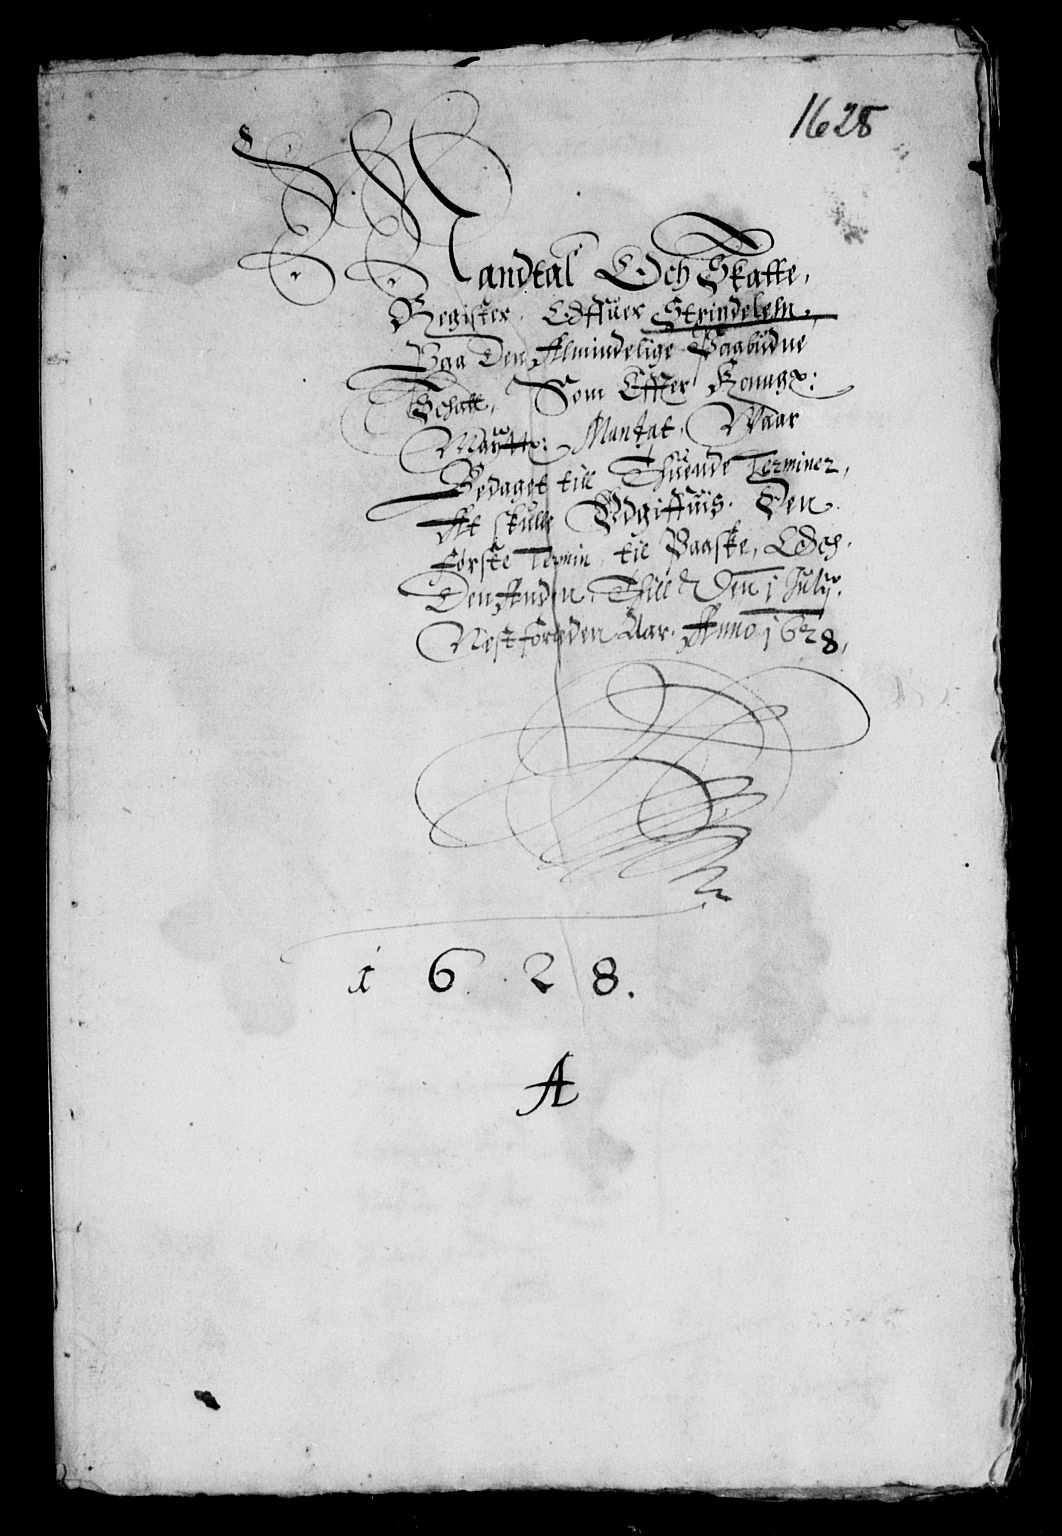 1628
Mandtal Och Skatte,
Register. Offuer Strindelehn,
Paa Den Almindelige Paabudne
Schatt, Som Effter Kongx:
Maytts: Mandat, Waar
Bedaget till Thuende Terminer,
At skulle Vdgiffuis. Den
første Termin, til Paaske, Och
Den Anden. Thill Den 1 July.
Nest foreden Aar. Anno 1628,
1628.
A